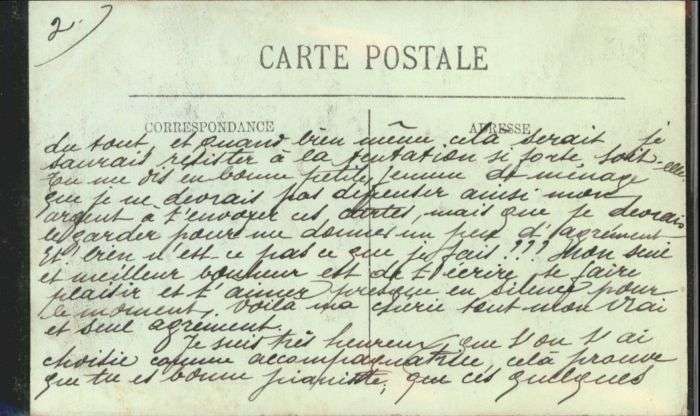 2.)
CARTE POSTALE
CORRESPONDANCE
ADRESSE
du tout, et quand bien même celà serait je
saurais résister à la tentation si forte soit-elle.
Tu me dis en bonne petite femme de ménage
que je ne devrais pas dépenser ainsi mon
argent a t'envoyer ces cartes, mais que je devrais
le garder pour me donner un peu d'agrément
Et bien n'est ce pas ce que je fais !!! Mon seul
et meilleur bonheur est de t'écrire, te faire
plaisir et t'aimer presque en silence pour
le moment. Voilà ma chérie tout mon vrai
et seul agrément.
Je suis très heureux, que l'on t'ai
choisie comme accompagnatrice, celà prouve
que tu es bonne pianiste, que ces quelques